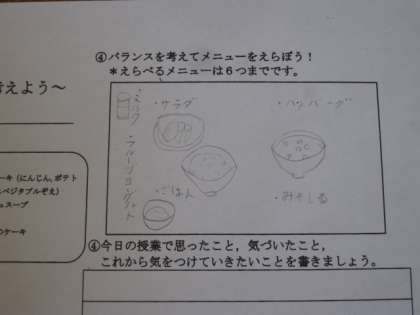 考えよう～
④バランスを考えてメニューをえらぼう！
＊えらべるメニューは６つまでです。
・ミルク
・サラダ
・ハンバーグ
・フルーツヨーグルト
・ごはん
・みそしる
ーキ（にんじん，ポテト
ベジタブルぞえ）
スープ
のケーキ
④今日の授業で思ったこと，気づいたこと，
これから気をつけていきたいことを書きましょう。